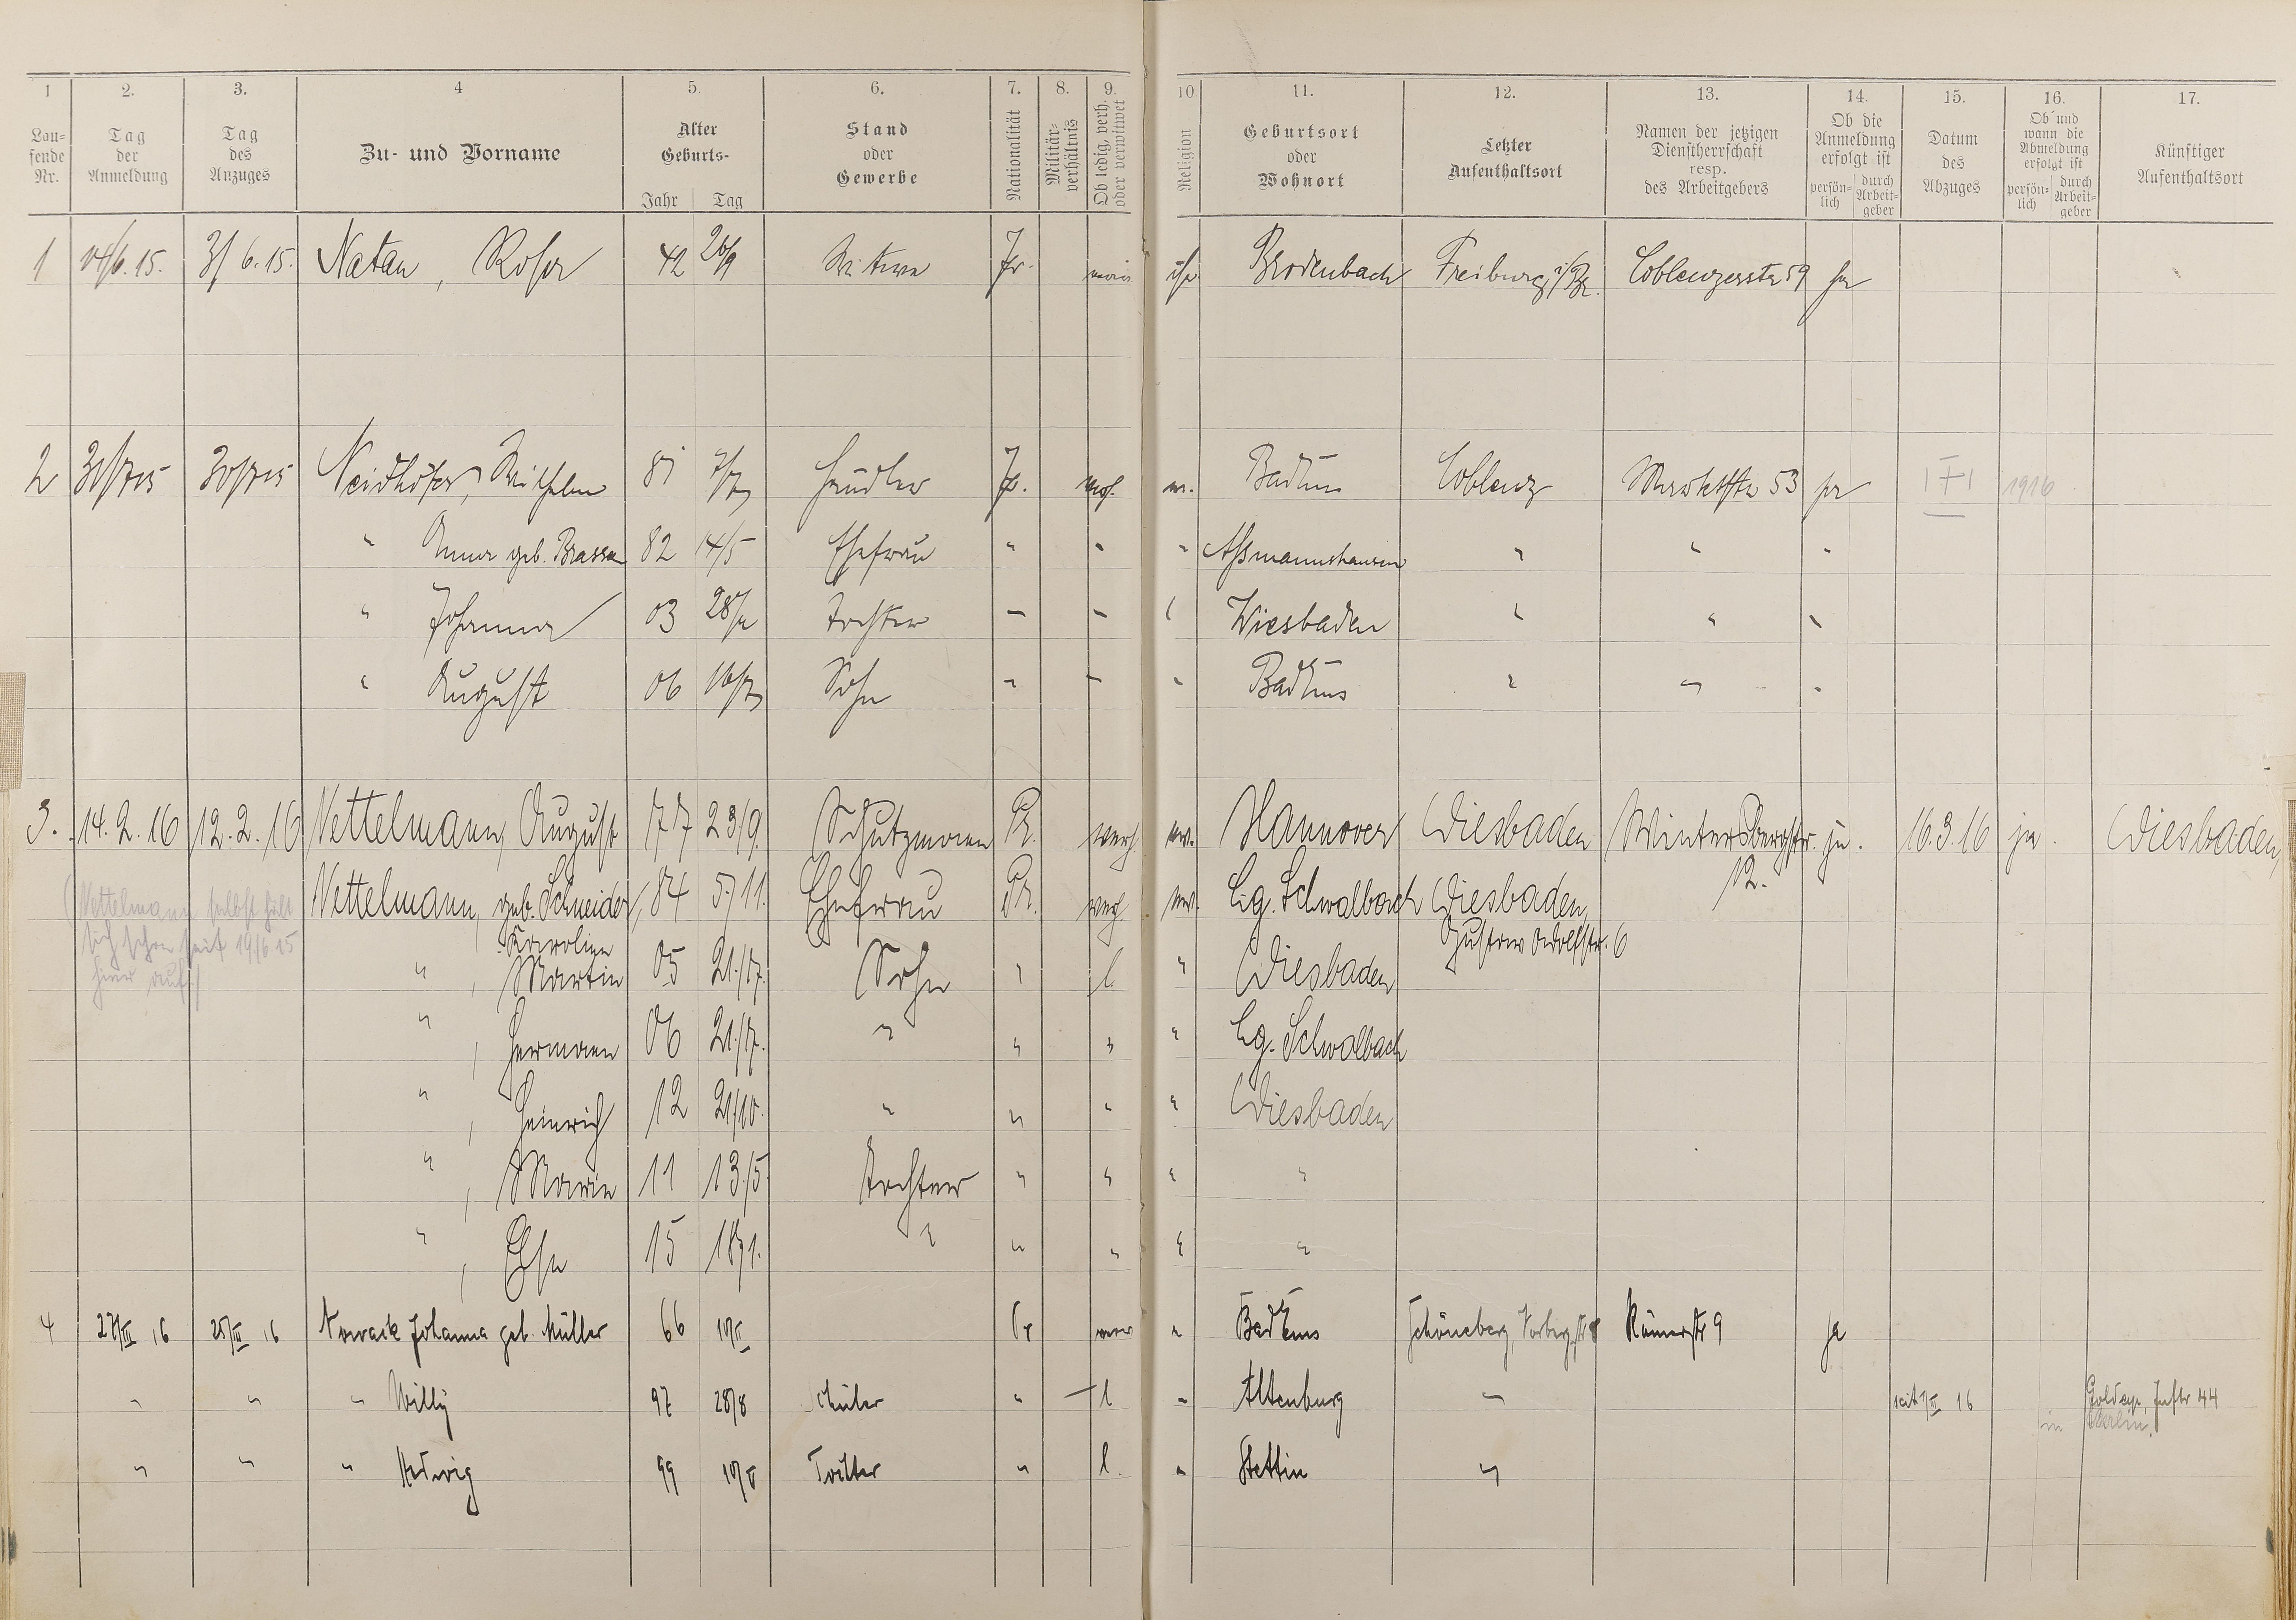 1 2. 3. 4 5. 6. 7. 8. 9. 10 11. 12. 13. 14. 15. 16. 17.
Laufende Nr.
Tag der Anmeldung
Tag des Anzuges
Zu- und Vorname
Alter
Geburts-
Jahr Tag
Stand oder Gewerbe
Nationalität
Militär-verhältnis
Ob ledig, verh. oder verwitwet
Religion
Geburtsort oder Wohnort
Letzter Aufenthaltsort
Namen der jetzigen Dienstherrschaft resp. des Arbeitgebers
Ob die Anmeldung erfolgt ist
persönlich durch Arbeitgeber
Datum des Abzuges
Ob und wann die Abmeldung erfolgt ist
persönlich durch Arbeitgeber
Künftiger Aufenthaltsort
1 6.15. 6.15. Natan, Rosa 42 26/9 Witwe Pr. isr. Brodenbach Freiburg i/Br. Coblenzerstr 59 ja
2 30/7 15 30/7 15 Neidhöfer, Wilhelm 81 7/7 Händler Pr. verh. ev. Bad Ems Coblenz Marktstr 53 ja 1916
" Anna geb. Brassa 82 14/5 Ehefrau " " " Aßmannshausen " " "
" Johanna 03 Tochter " " " Wiesbaden " " "
" August 06 16/7 Sohn " " " Bad Ems " " "
3. 14.2.16 12.2.16 Nettelmann, August 77 23/9. Schutzmann Pr. verh. ev. Hannover Wiesbaden Wintersbergstr. 12. ja. 16.3.16 ja. Wiesbaden,
(Nettelmann selbst hält sich schon seit 19/6 15 hier auf.)
Nettelmann, geb. Schneider, Karoline 84 5./11. Ehefrau Pr. verh. ev. Lg. Schwalbach Wiesbaden, Gustav Adolfstr. 6
" , Martin 05 21./7. Sohn " l. " Wiesbaden
" , Hermann 06 21./7. " " " " Lg. Schwalbach
" , Heinrich 12 21/10. " " " " Wiesbaden
" , Marie 11 13./5. Tochter " " " "
" , Else 15 " " " " "
4 27/III 16 25/III 16 Nowack Johanna geb. Müller 66 Pr " Bad Ems Schöneberg, Vorbergstr Römerstr 9 ja
" " " Willy 97 28/8 Schüler " l " Altenburg " seit III 16 Goldap, Inftr 44
in Berlin.
" " " Hedwig 99 Tochter " l. " Stettin "